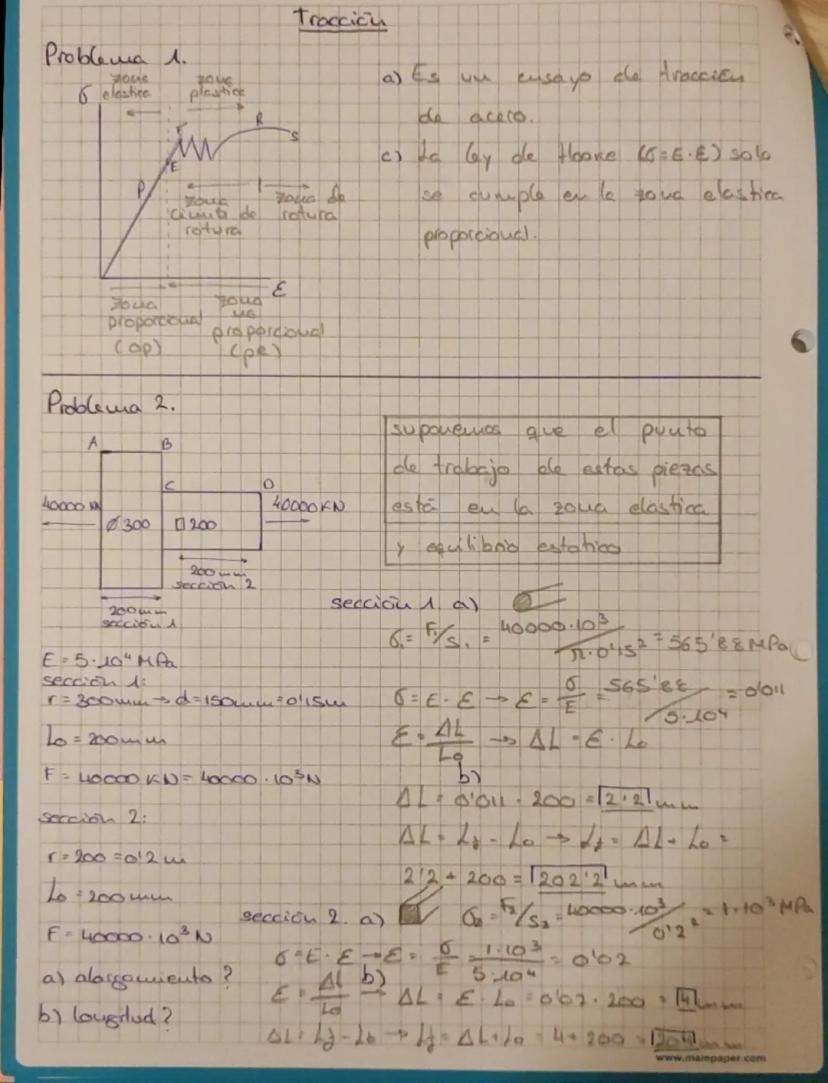 Tracción
Problema 1.
zona elastica
zona plastica
σ
F
R
S
E
P
zona cimuto de rotura
zona de rotura
ε
zona proporcional (op)
zona no proporcional (pε)
a) Es un ensayo de tracción
de acero.
c) La ley de Hoone (σ=E·ε) solo
se cumple en la zona elastica
proporcional.
Problema 2.
A
B
C
D
40000 KN
ϕ300
□200
40000KN
200mm
sección 2
200mm
sección 1
suponemos que el punto
de trabajo de estas piezas
está en la zona elastica
y equilibrio estatico
E = 5·10⁴ MPa
sección 1:
r=300mm→d=150mm=0'15m
L₀=200mm
F=40000 KN=40000·10³N
sección 2:
r=200=0'2m
L₀=200mm
F=40000·10³N
a) alargamiento?
b) longitud?
sección 1. a)
σ₁=F₁/S₁=40000·10³/π·0'15²=565'88MPa
σ=E·ε→ε=σ/E=565'88/5·10⁴=0'011
ε=ΔL/L₀→ΔL=ε·L₀
b)
ΔL=0'011·200=2'2mm
ΔL=Lf-L₀→Lf=ΔL+L₀=
2'2+200=202'2mm
sección 2. a) σ₂=F₂/S₂=40000·10³/0'2²=1·10³MPa
σ=E·ε→ε=σ/E 1·10³/5·10⁴=0'02
ε=ΔL/L₀ b)→ΔL=ε·L₀=0'02·200=4mm
ΔL=Lf-L₀→Lf=ΔL+L₀=4+200=204mm
www.mainpaper.com